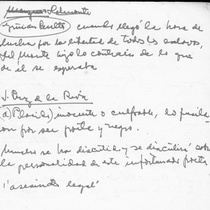 cuando llegó la hora de
luchar por la libertad de todos los esclavos,
hizo lo contrario de lo que
de él se esperaba
J. Bergal de la Riva
a) Plácido, inocente o culpable, lo fusila
ron por ser poeta y negro.
Mucho se ha discutido y se discutirá sobre
la personalidad de este infortunado poeta
"asesinato legal"